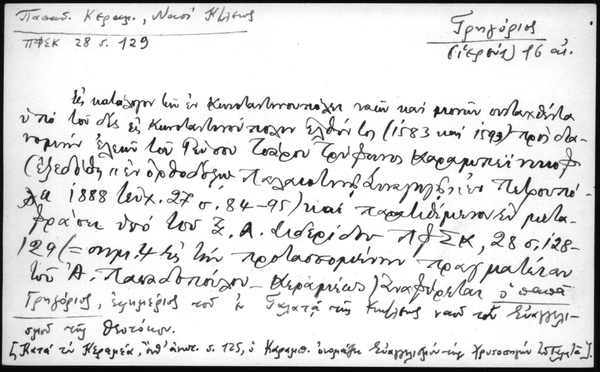 Παπαδ. Κεραμ., Ναοί Κ/λεως
ΠΦΣΚ 28 σ. 129
Γρηγόριος
(ἱερεύς) 16 αἰ.
Εἰς κατάλογον τῶν ἐν Κωνσταντινουπόλει ναῶν καὶ μονῶν συνταχθέντα
ὑπὸ τοῦ δὶς εἰς Κωνσταντινούπολιν ἐλθόντος (1583 καὶ 1593) πρὸς δια-
νομὴν ἐλεῶν τοῦ Ρώσου Τσάρου Τρύφωνος Καραμπεΐνικωφ
(ἐξεδόθη ἐν ὀρθοδόξῳ Παλαιστινῇ Συλλογῇ, ἐν Πετρουπό-
λει 1888 τεῦχ. 27 σ. 84-95) καὶ παρατιθέμενον ἐν μετα-
φράσει ὑπὸ τοῦ Ξ. Α. Σιδερίδου ΠΦΣΚ, 28 σ. 128-
129 (= σημ. 4 εἰς τὴν προτασσομένην πραγματείαν
τοῦ Ἀ. Παπαδοπούλου-Κεραμέως) ἀναφέρεται ὁ παπᾶ
Γρηγόριος, ἐφημέριος τοῦ ἐν Γαλατᾷ τῆς Κπόλεως ναοῦ τοῦ Εὐαγγελι-
σμοῦ τῆς Θεοτόκου.
[Κατὰ τὸν Κεραμέα, ἔνθ' ἀνωτ. σ. 125, ὁ Καραμπ. ὀνομάζει Εὐαγγελισμὸν τῆς Χρυσοπηγῆς τοῦ Γαλατᾶ].